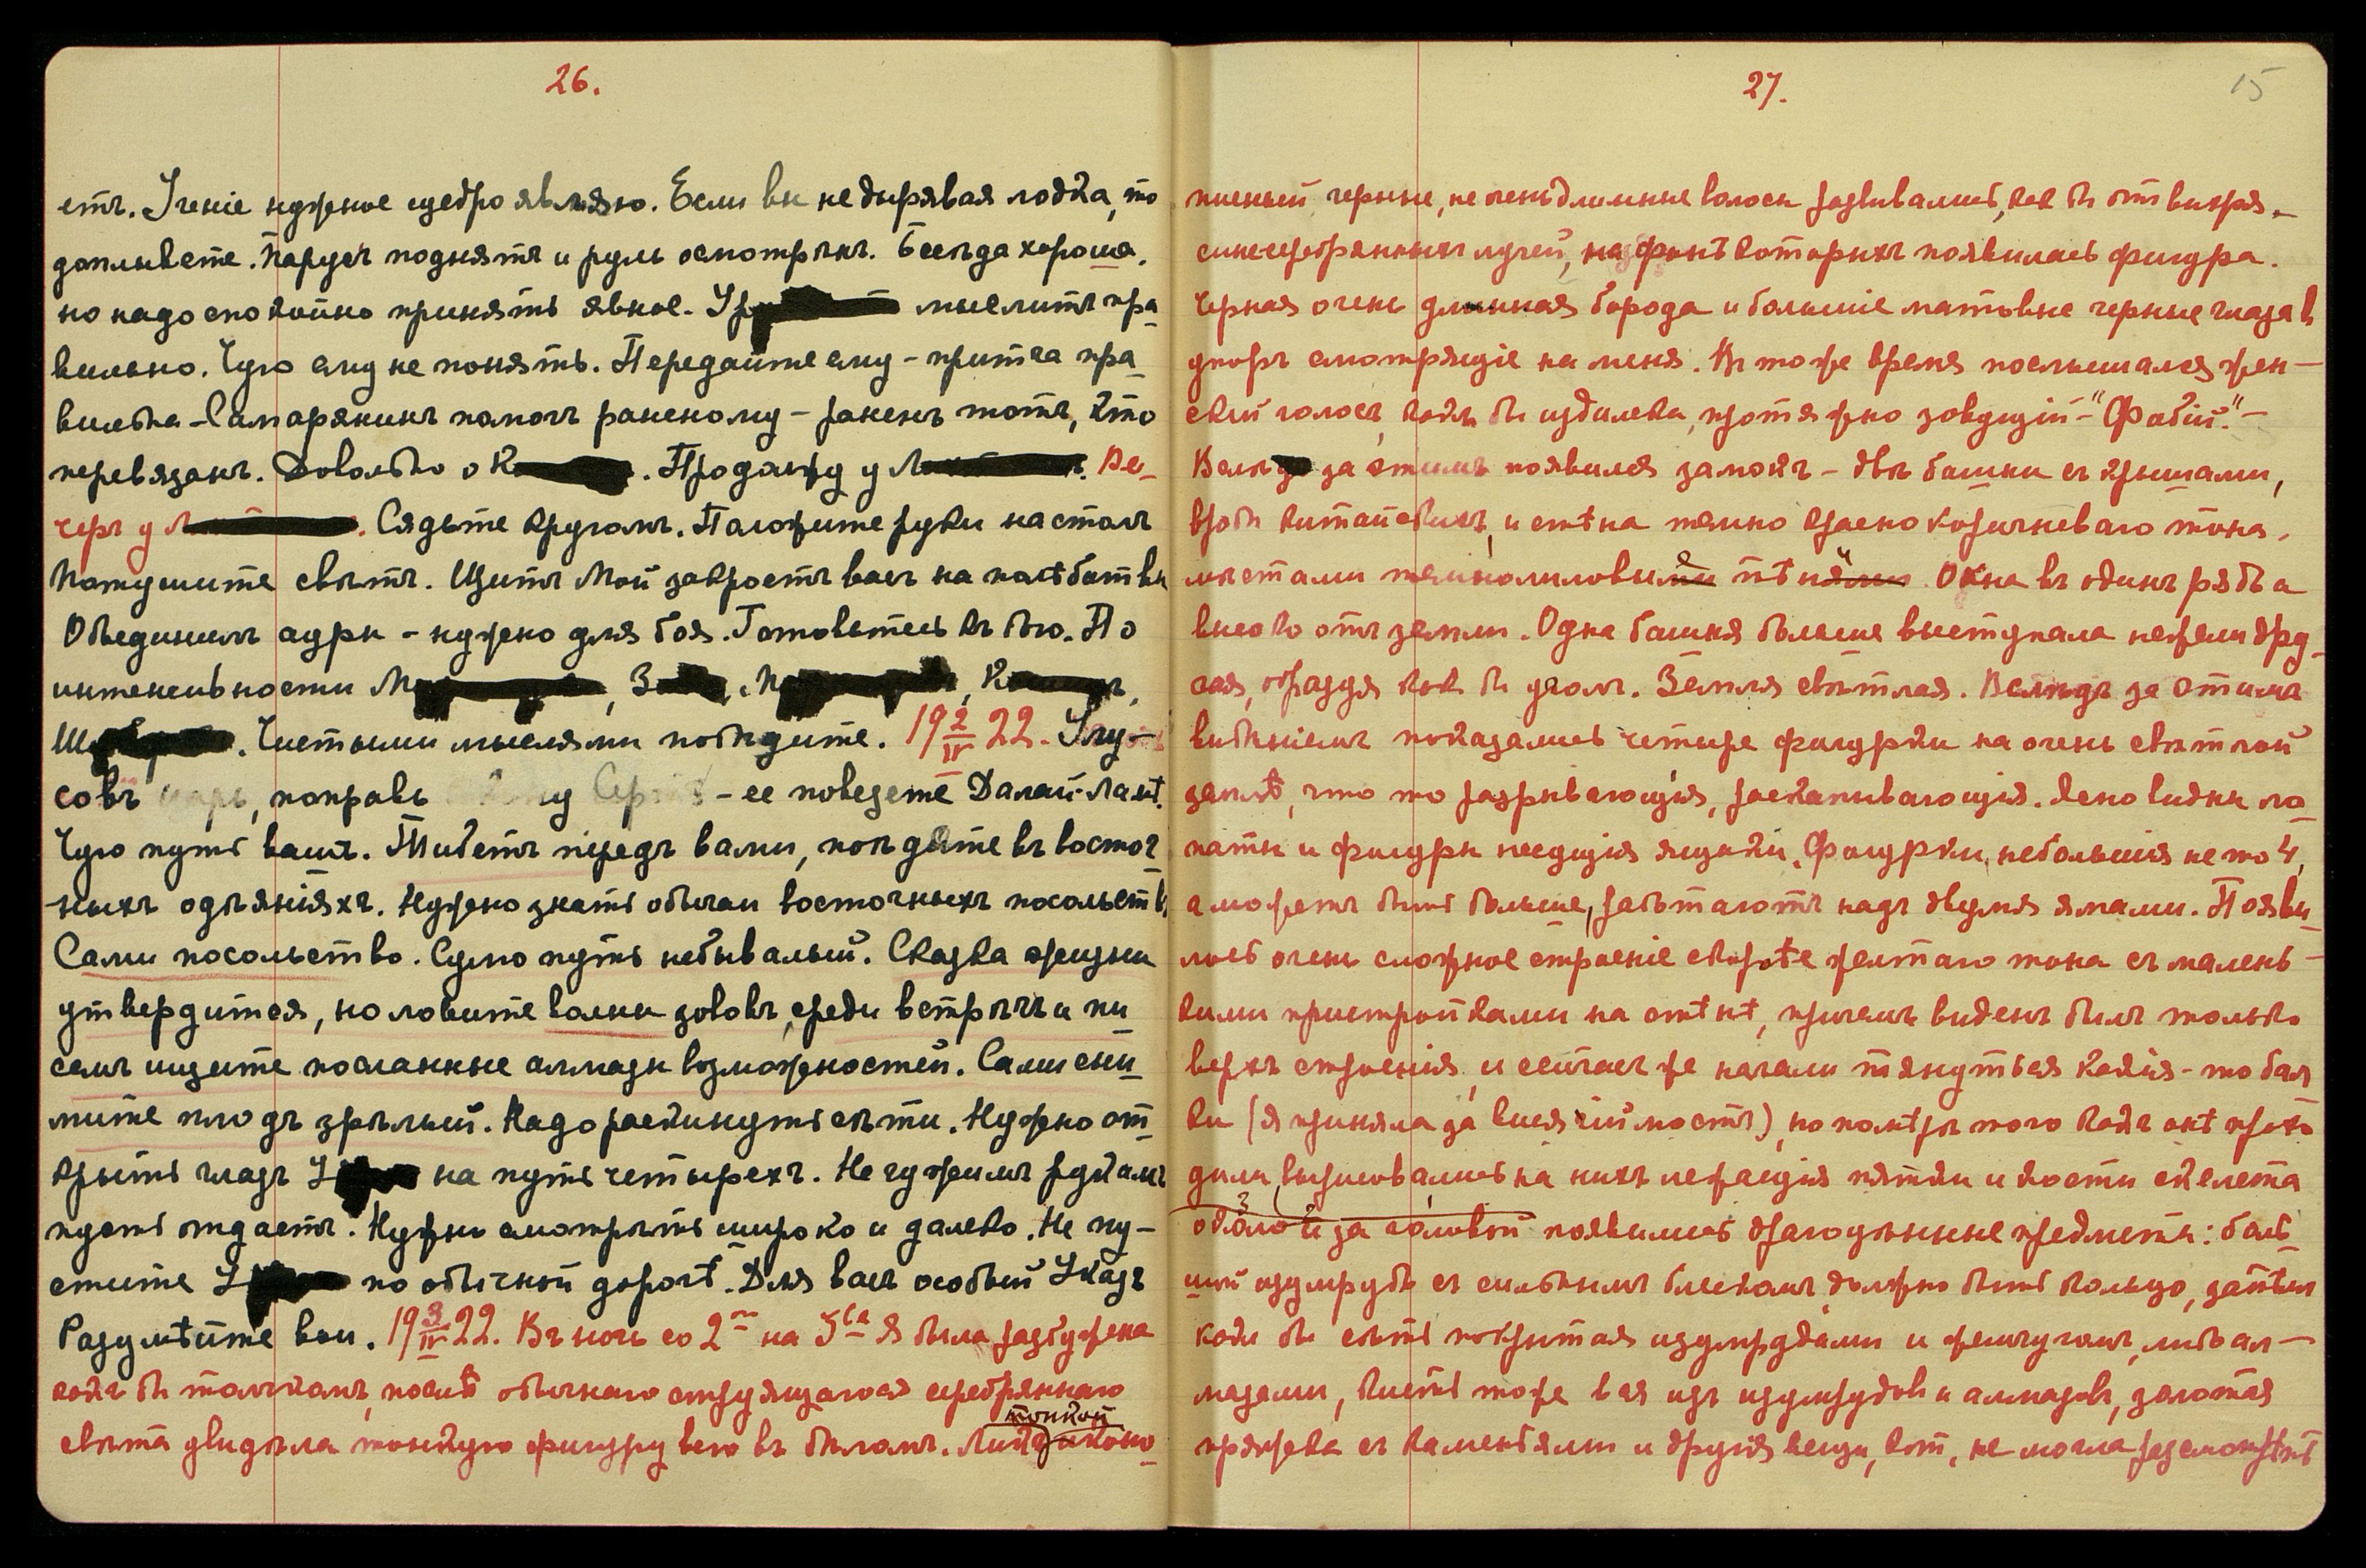 26.
етъ. Ученіе нужное щедро являю. Если вы не дырявая лодка, то
доплывете. Парусъ поднятъ и руль осмотрѣнъ. Бесѣда хороша,
но надо спокойно принять явное. мыслитъ пра
вильно. Чую ему не понять. Передайте ему – притча пра
вильна – Самарянинъ помогъ раненому – раненъ тотъ, кто
перевязанъ. Довольно о К. Продажу у Ве-
черъ у. Сядьте кругомъ. Положите руки на столъ
Потушите свѣтъ. Щитъ Мой закроетъ васъ на полѣ битвы
Объединимъ ауры – нужно для боя. Готовьтесь къ бою. По
интенсивности М, З, М, К,
Ш. Чистыми мыслями побѣдите. 19 2/IV 22.
совъ, поправь – ее повезете Далай-Ламѣ.
Чую путь вашъ. Тибетъ передъ вами, пойдете въ восточ
ныхъ одѣяніяхъ. Нужно знать обычаи восточныхъ посольствъ
Сами посольство. Сужю путь небывалый. Сказка жизни
утвердится, но ловите волны зововъ, среди встрѣчъ и пи
семъ ищите посланные алмазы возможностей. Сами сни
мите плодъ зрѣлый. Надо раскинуть сѣти. Нужно от
крыть глазъ У на путь четырехъ. Не чужимъ рукамъ
пусть отдастъ. Нужно смотрѣть широко и далеко. Не пу-
стите У по обычной дорогѣ. Для васъ особый Указъ
Разумѣйте вы. 19 3/IV 22. Въ ночь со 2го на 3ье я была разбужена
какъ бы толчкомъ, послѣ обычнаго струящагося серебряннаго
тонкой
свѣта увидѣла тонкую фигуру всю въ бѣломъ. Ликъ иконо-
27.
15
писный черные, не очень длинные волосы развивались, как бы отъ вихря,
синесеребрянныхъ лучей, на фонѣ которыхъ появилась фигура.
Черная очень длинная борода и большіе матовые черные глаза в
упоръ смотрящіе на меня. Въ тоже время послышался жен-
скій голосъ, какъ бы издалека, протяжно зовущій – "Фабій." –
Вслѣдъ за этимъ появился замокъ – двѣ башни съ крышами,
вродѣ китайскихъ, и стѣна темно красно коричневаго тона,
мѣстами темнолиловый. Окна въ одинъ рядъ а
высоко отъ земли. Одна башня больше выступала нежели дру-
гая, образуя как бы уголъ. Земля свѣтлая. Вслѣдъ за этимъ
видѣніемъ показались четыре фигурки на очень свѣтлой
землѣ, что то разрывающія, раскапывающія. Ясно видны ло
паты и фигуры несущія ящики. Фигурки небольшія не то 4,
а можетъ быть больше, работаютъ надъ двумя ямами. Появи
лось очень сложное строеніе скорѣе желтаго тона съ малень-
кими пристройками на стѣнѣ, причемъ виденъ былъ только
верхъ строенія, и сейчасъ же начали тянуться какія-то бал
ки (я приняла за висячій мостъ), но помѣрѣ того какъ онѣ прохо
дили, вырисовались на нихъ лежащія пятки и кости скелета
около и за головой появились драгоцѣнные предметы: боль
шой изумрудъ съ сильнымъ блескомъ, должно быть кольцо, затѣмъ
какъ бы сѣть покрытая изумрудами и жемчугами, либо ал-
мазами, кисть тоже вся изъ изумрудовъ и алмазовъ, золотая
пряжка съ каменьями и другія вещи, кот. не могла разсмотрѣть